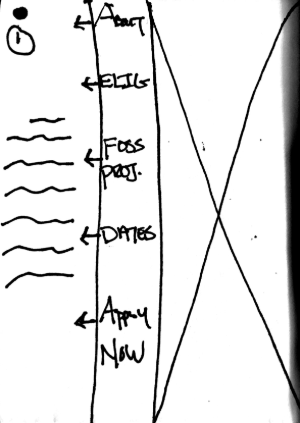 About
ELIG
FOSS
PROJ.
DATES
Apply
NOW